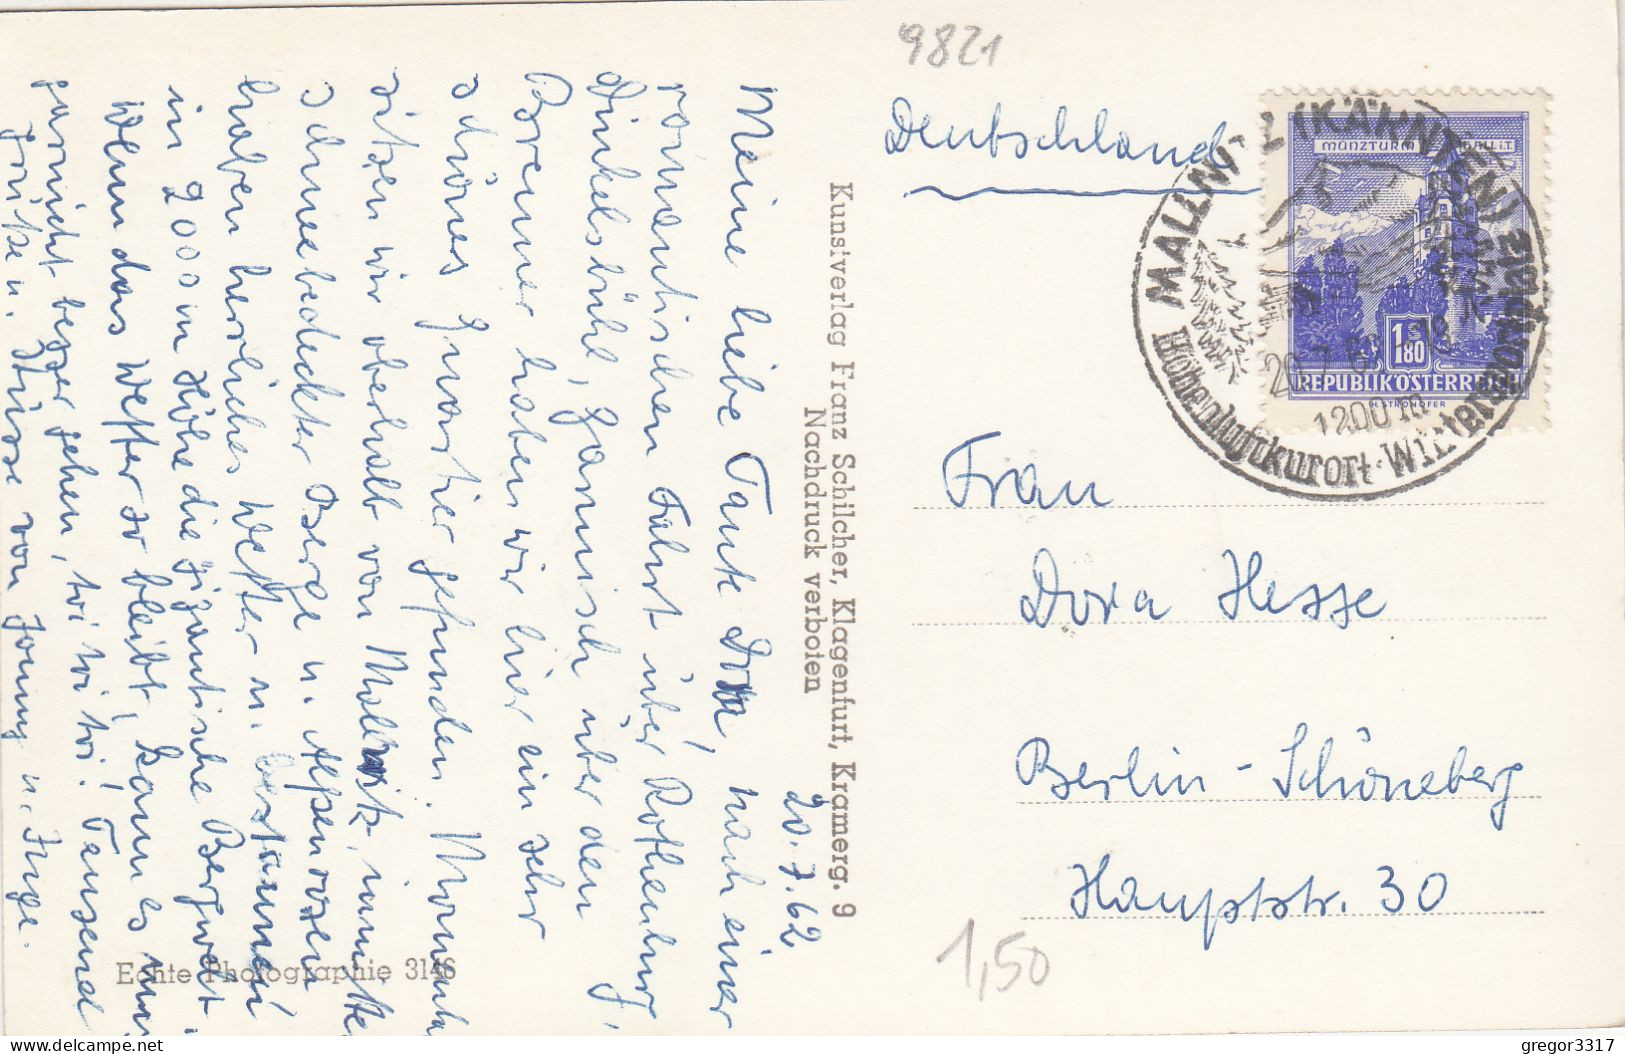 20.7.62
Meine liebe Tante Dora, nach einer
romantischen Fahrt über Rothenburg,
Dinkelsbühl, Garmisch über den
Brenner haben wir hier ein sehr
schönes Quartier gefunden. Nun
sitzen wir oberhalb von Mallnitz, inmitten
schneebedeckter Berge u. Alpenrosen
haben herrliches Wetter u. bestaunen
in 2000 m Höhe die gigantische Bergwelt
Wenn das Wetter so bleibt, kann es uns
garnicht besser gehen, tri tri tri! Tausend
Grüße u. Küsse von
u. Inge.
Echte Photographie 3146
Kunstverlag Franz Schilcher, Klagenfurt, Kramerg. 9
Nachdruck verboten
9821
Deutschland
MÜNZTURM HALL i.T.
1.80
REPUBLIK ÖSTERREICH
H. STROHOFER
MALLNITZ (KÄRNTEN)
1200 m
Höhenluftkurort · Wintersport
Frau
Dora Hesse
Berlin-Schöneberg
Hauptstr. 30
1,50
gregor3317
delcampe.net